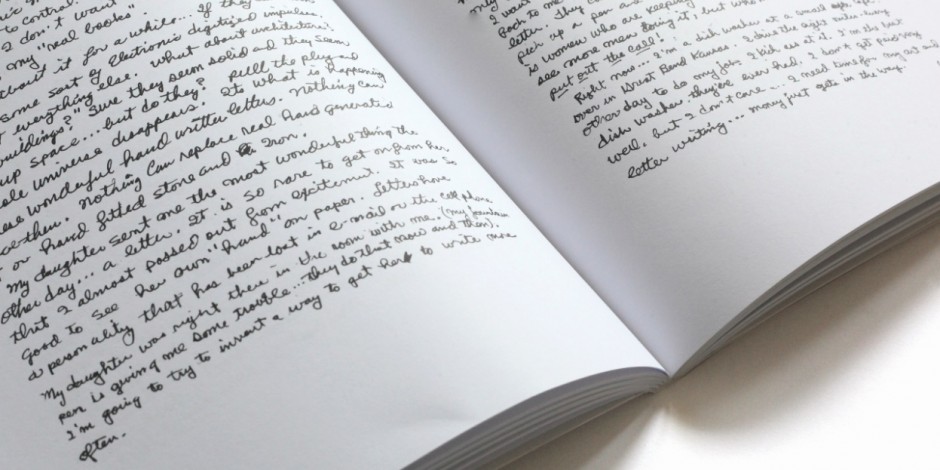 to control
I don't want
my "real books"... If they
trust it for a while...
some sort of electronic digitized impulse.
everything else. What about architecture?
buildings?" Sure they seem solid and they seem
up space... but do they? pull the plug and
universe disappears. Its what is happening
wonderful hand written letters. Nothing can
Nothing can replace real hand generated
or hand fitted stone and iron.
My daughter sent me the most wonderful thing the
other day... a letter. It is so rare to get on from her
that I almost passed out from excitement. It was so
good to see her own "hand" on paper. Letters have
a personality that has been lost in e-mail or the cell phone.
My daughter was right there in the room with me. (My fountain
pen is giving me some trouble... they do that now and then).
I'm going to try to invent a way to get her to write more
often.
only
I want
back to me
letter. They
pick up a pen and
is women who are keeping
see more men doing it, but who
put out the call!
Right now... I'm a dish washer at a small
over in West Bend Kansas. I
other day to do my job. I kid
dish washer they've ever had. I don't get paid very
well, but I don't care... I need time for my art and
letter writing... money just gets in the way.